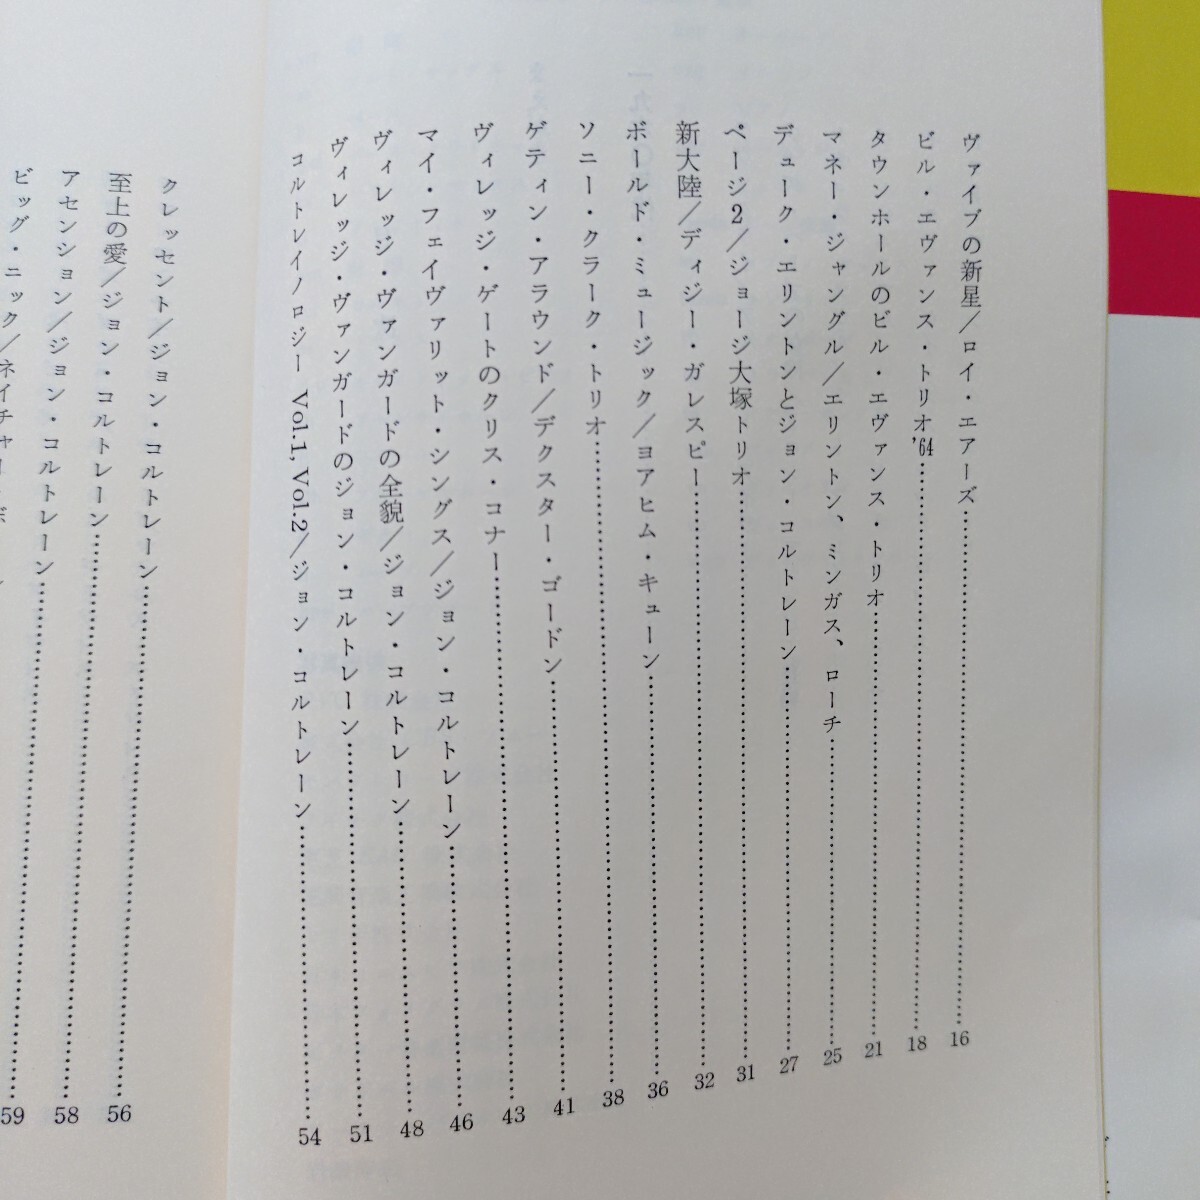 ヴァイブの新星/ロイ・エアーズ……16
ビル・エヴァンス・トリオ'64……18
タウンホールのビル・エヴァンス・トリオ……21
マネー・ジャングル/エリントン、ミンガス、ローチ……25
デューク・エリントンとジョン・コルトレーン……27
ページ2/ジョージ大塚トリオ……31
新大陸/ディジー・ガレスピー……32
ボールド・ミュージック/ヨアヒム・キューン……36
ソニー・クラーク・トリオ……38
ゲティン・アラウンド/デクスター・ゴードン……41
ヴィレッジ・ゲートのクリス・コナー……43
マイ・フェイヴァリット・シングス/ジョン・コルトレーン……46
ヴィレッジ・ヴァンガードの全貌/ジョン・コルトレーン……48
ヴィレッジ・ヴァンガードのジョン・コルトレーン……51
コルトレイノロジー Vol.1, Vol.2/ジョン・コルトレーン……54
クレッセント/ジョン・コルトレーン……56
至上の愛/ジョン・コルトレーン……58
アセンション/ジョン・コルトレーン……59
ビッグ・ニック/ネイチャー・ボ